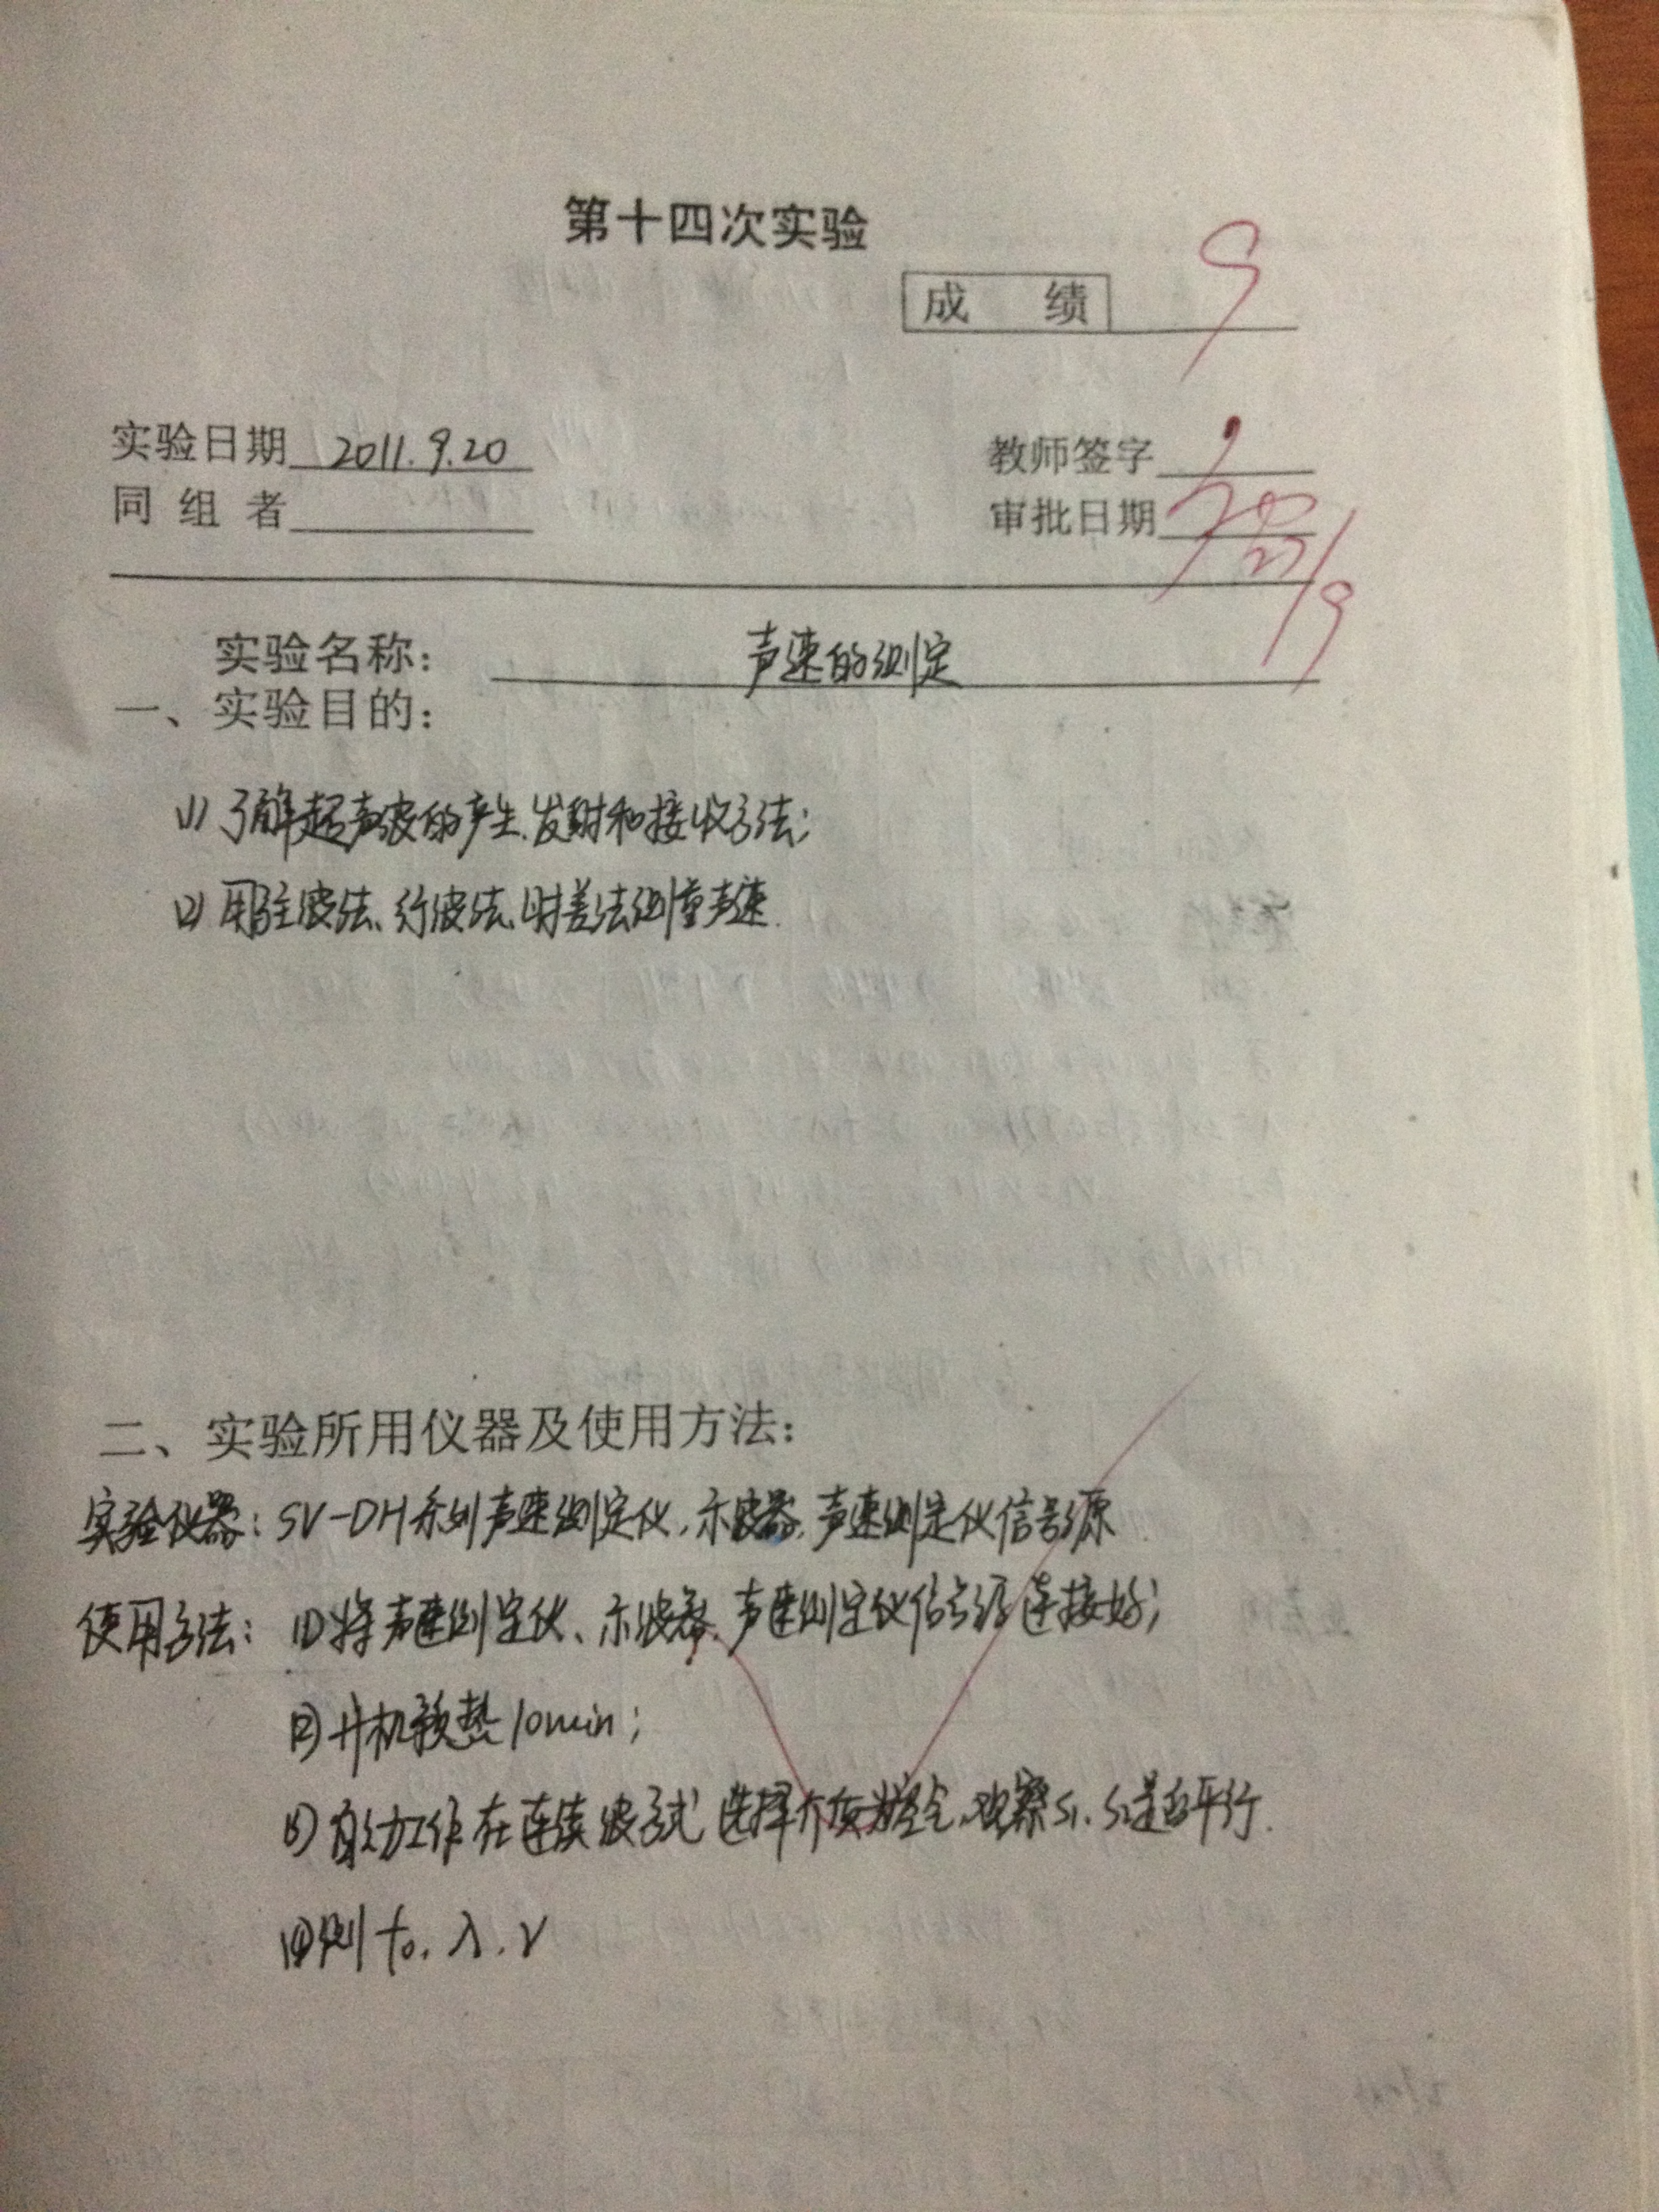 第十四次实验
成 绩 9
实验日期 2011.9.20 教师签字
同 组 者 审批日期 21/9
实验名称： 声速的测定
一、实验目的：
(1) 了解超声波的产生、发射和接收方法；
(2) 用驻波法、行波法、时差法测量声速.
二、实验所用仪器及使用方法：
实验仪器：SV-DH系列声速测定仪、示波器、声速测定仪信号源
使用方法：(1) 将声速测定仪、示波器、声速测定仪信号源连接好；
(2) 开机预热10min；
(3) 自动工作在连续波方式 选择介质为空气，观察S1、S2是否平行.
(4) 测 f0、λ、v